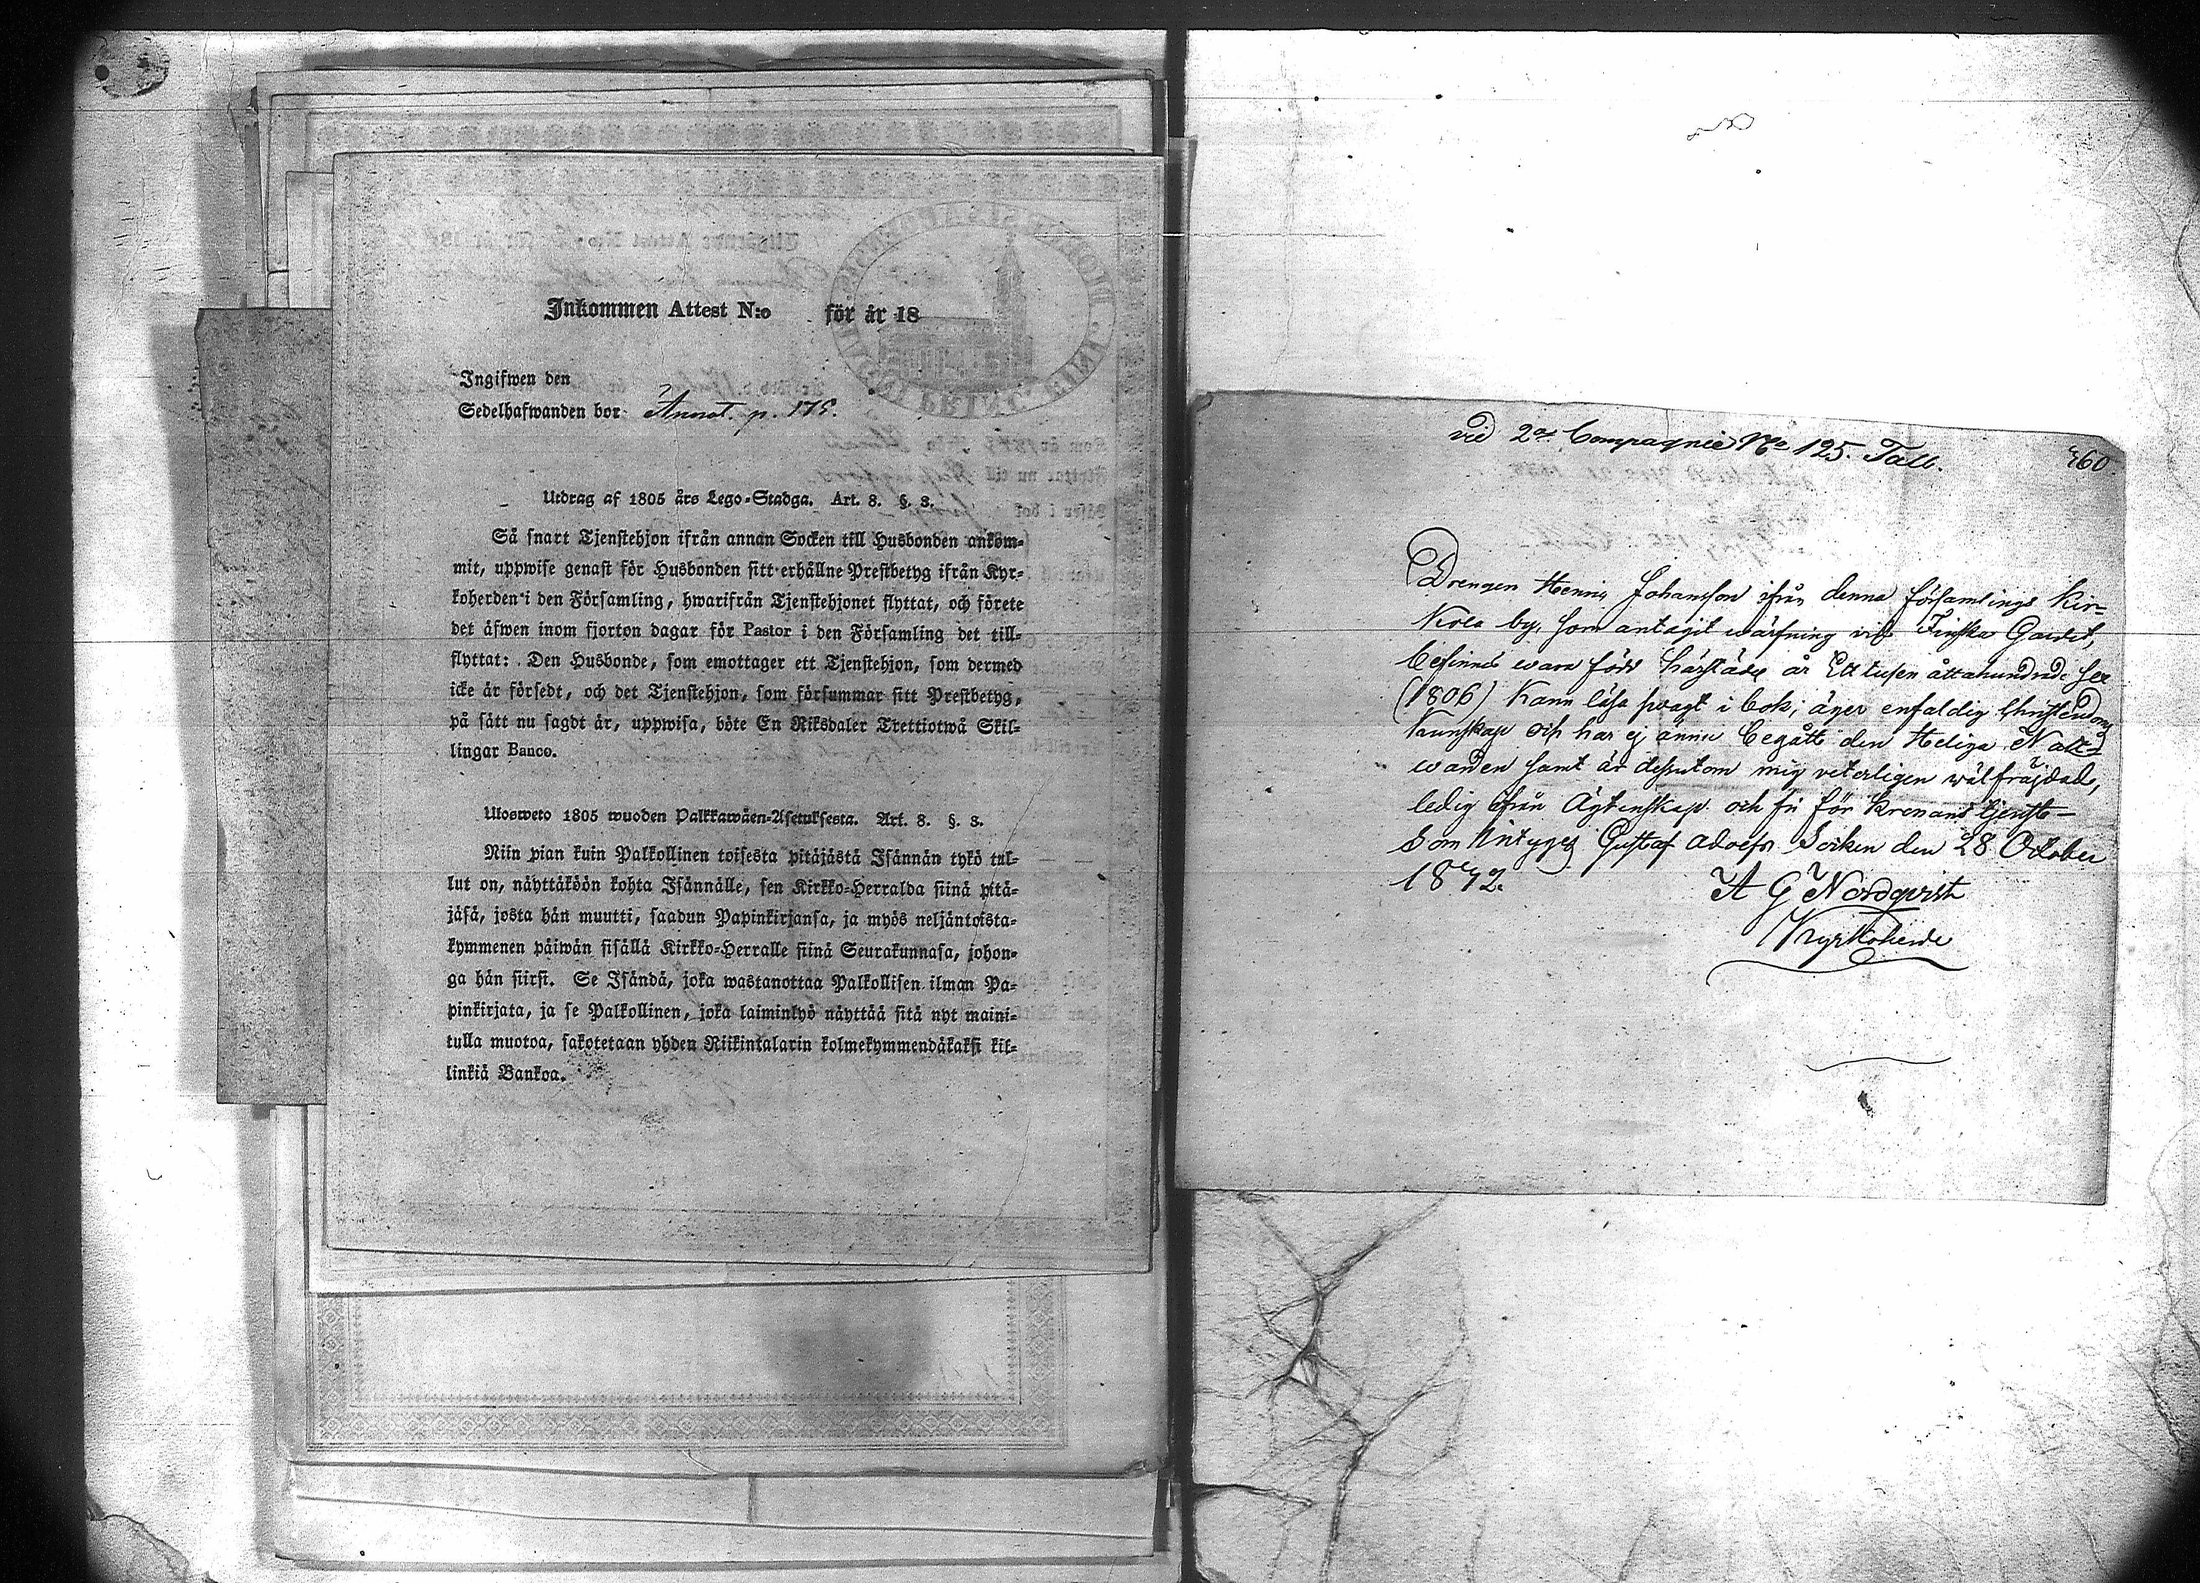 Inkommen Attest N:o för år 18
Ingifwen den
Sedelhafwanden bor Annot. p. 175.
Utdrag af 1805 års Lego-Stadga. Art. 8. §. 3.
Så snart Tjenstehjon ifrån annan Socken till Husbonden ankom-
mit, uppwise genast för Husbonden sitt erhållne Prestbetyg ifrån Kyr-
koherden i den Församling, hwarifrån Tjenstehjonet flyttat, och förete
det äfwen inom fjorton dagar för Pastor i den Församling det till-
flyttat: Den Husbonde, som emottager ett Tjenstehjon, som dermed
icke är försedt, och det Tjenstehjon, som försummar sitt Prestbetyg,
på sätt nu sagdt är, uppwisa, böte En Riksdaler Trettiotwå Skil-
lingar Banco.
Ulosweto 1805 wuoden Palkkawäen-Asetuksesta. Art. 8. §. 3.
Niin pian kuin Palkollinen toisesta pitäjästä Isännän tykö tul-
lut on, näyttäköön kohta Isännälle, sen Kirkko-Herralda siinä pitä-
jäsä, josta hän muutti, saadun Papinkirjansa, ja myös neljäntoista-
kymmenen päiwän sisällä Kirkko-Herralle siinä Seurakunnasa, johon-
ga hän siirsi. Se Isändä, joka wastanottaa Palkollisen ilman Pa-
pinkirjata, ja se Palkollinen, joka laiminlyö näyttää sitä nyt maini-
tulla muotoa, sakotetaan yhden Riikintalarin kolmekymmendäkaksi kil-
linkiä Bankoa.
vid 2a Compagnie No 125. Tall.
460
Drengen Henric Johansson ifrån denna församlings Kir-
kola by, som antagit värfning vid Finska Gardet,
befinnes vara född härstädes år Ett tusen åttahundrade sex
(1806) kann läsa svagt i bok; äger enfaldig Christendoms
Kunskap och har ej ännu begått den Heliga Natt-
warden samt är dessutom mig veterligen wälfräjdad,
ledig ifrån Ägtenskap och fri för Kronans tjenst-
Som Intygas Gustaf Adolfs Socken den 28 October
18
A G Nordqvist
Kyrkoherde